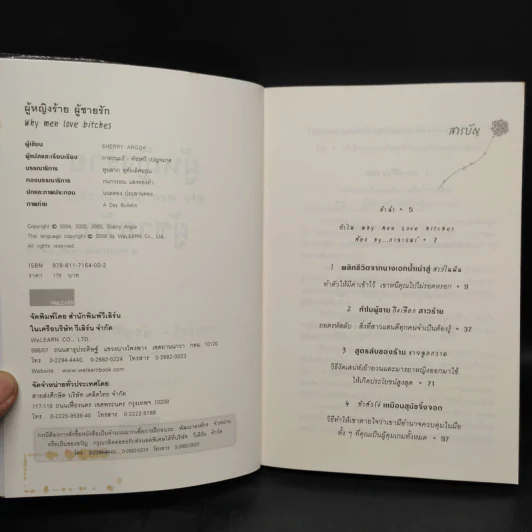 ผู้หญิงร้าย ผู้ชายรัก
Why men love bitches
ผู้เขียน SHERRY ARGOV
ผู้แปลและเรียบเรียง
บรรณาธิการ
กองบรรณาธิการ
ปกและภาพประกอบ
ภาพถ่าย A Day Bulletin
Copyright © 2004, 2002, 2000, Sherry Argov
Thai language copyright © 2008 by WeLEARN Co., Ltd.
All rights reserved.
ISBN 978-611-7164-00-2
ราคา 175 บาท
WeLEARN
จัดพิมพ์โดย สำนักพิมพ์วีเลิร์น
ในเครือบริษัท วีเลิร์น จำกัด
WeLEARN CO., LTD.
โทร 0-2294-4440, 0-2682-0224 โทรสาร 0-2682-0023
Website : www.welearnbook.com
จัดจำหน่ายทั่วประเทศโดย
สายส่งศึกษิต บริษัท เคล็ดไทย จำกัด
117-119 ถนนเฟื่องนคร เขตพระนคร กรุงเทพฯ 10200
โทร 0-2225-9536-40 โทรสาร 0-2222-5188
สารบัญ
คำนำ • 5
ทำไม Why Men Love Bitches
ต้อง by... • 7
1 พลิกชีวิตจากนางเอกน้ำเน่าสู่
ทำตัวให้มีค่าเข้าไว้ เขาหนีคุณไปไม่รอดหรอก • 9
2 ทำไมผู้ชาย ถึงเลือก สาวร้าย
ถอดรหัสลับ : สิ่งที่สาวแสนดีทุกคนจำเป็นต้องรู้ • 37
3 สูตรลับของร้าน
วิธีงัดเสน่ห์เย้ายวนและมารยาหญิงออกมาใช้
ให้เกิดประโยชน์สูงสุด • 71
4 ทำตัวโง่ เหมือนสุนัขจิ้งจอก
วิธีทำให้เขาตายใจว่าเขามีอำนาจควบคุมในมือ
ทั้ง ๆ ที่คุณเป็นผู้คุมเกมทั้งหมด • 97